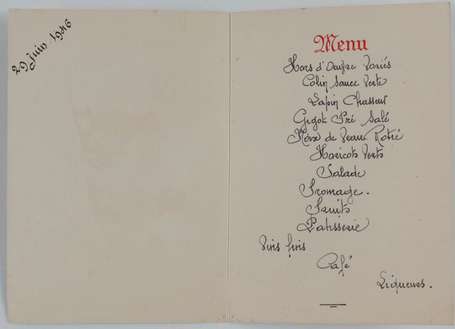 29 juin 1946
Menu
Hors d'Œuvre Variés
Colin sauce Verte
Lapin Chasseur
Gigot Pré Salé
de Veau
Haricots Verts
Salade
Fromage.
Fruits
Patisserie
Vins fins
Café
Liqueurs.